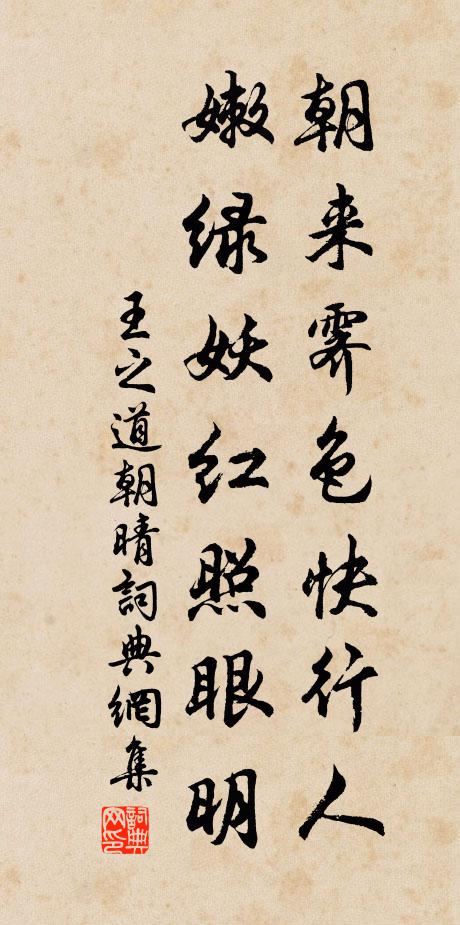 朝来霁色快行人
嫩绿妖红照眼明
王之道朝晴詞典網集
詞典网印